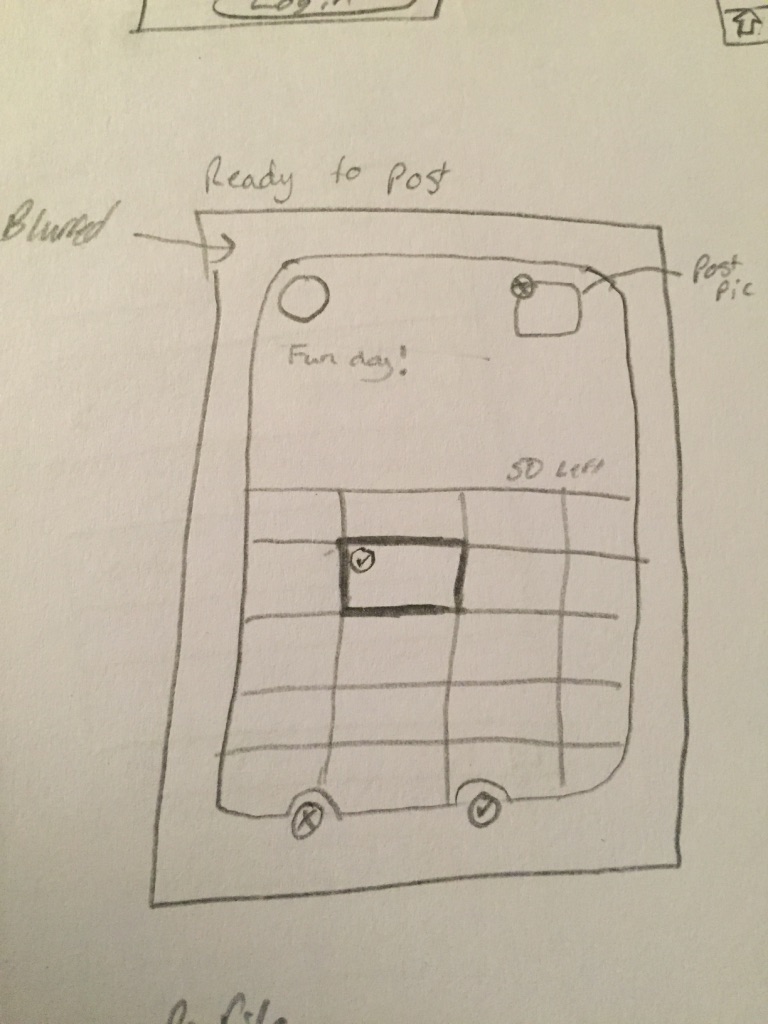 Log in
Ready to Post
Blurred
Post
Pic
Fun day!
50 Left